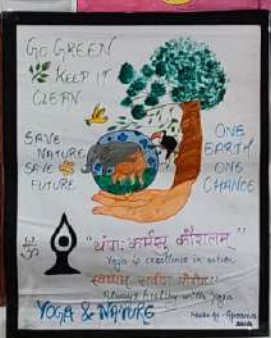 GO GREEN
KEEP IT
CLEAN
SAVE
NATURE
SAVE
FUTURE
ONE
EARTH
ONE
CHANCE
ॐ
"योगः कर्मसु कौशलम्"
Yoga is excellence in action
Always healthy with Yoga
YOGA & NATURE
Made by -